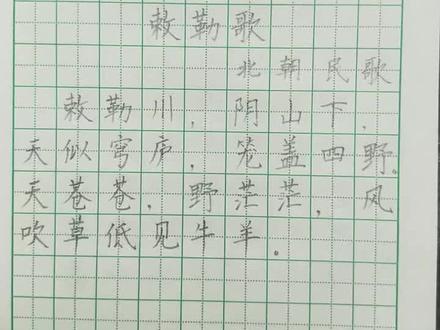 敕勒歌
北朝民歌
敕勒川，阴山下，
天似穹庐，笼盖四野。
天苍苍，野茫茫，风
吹草低见牛羊。